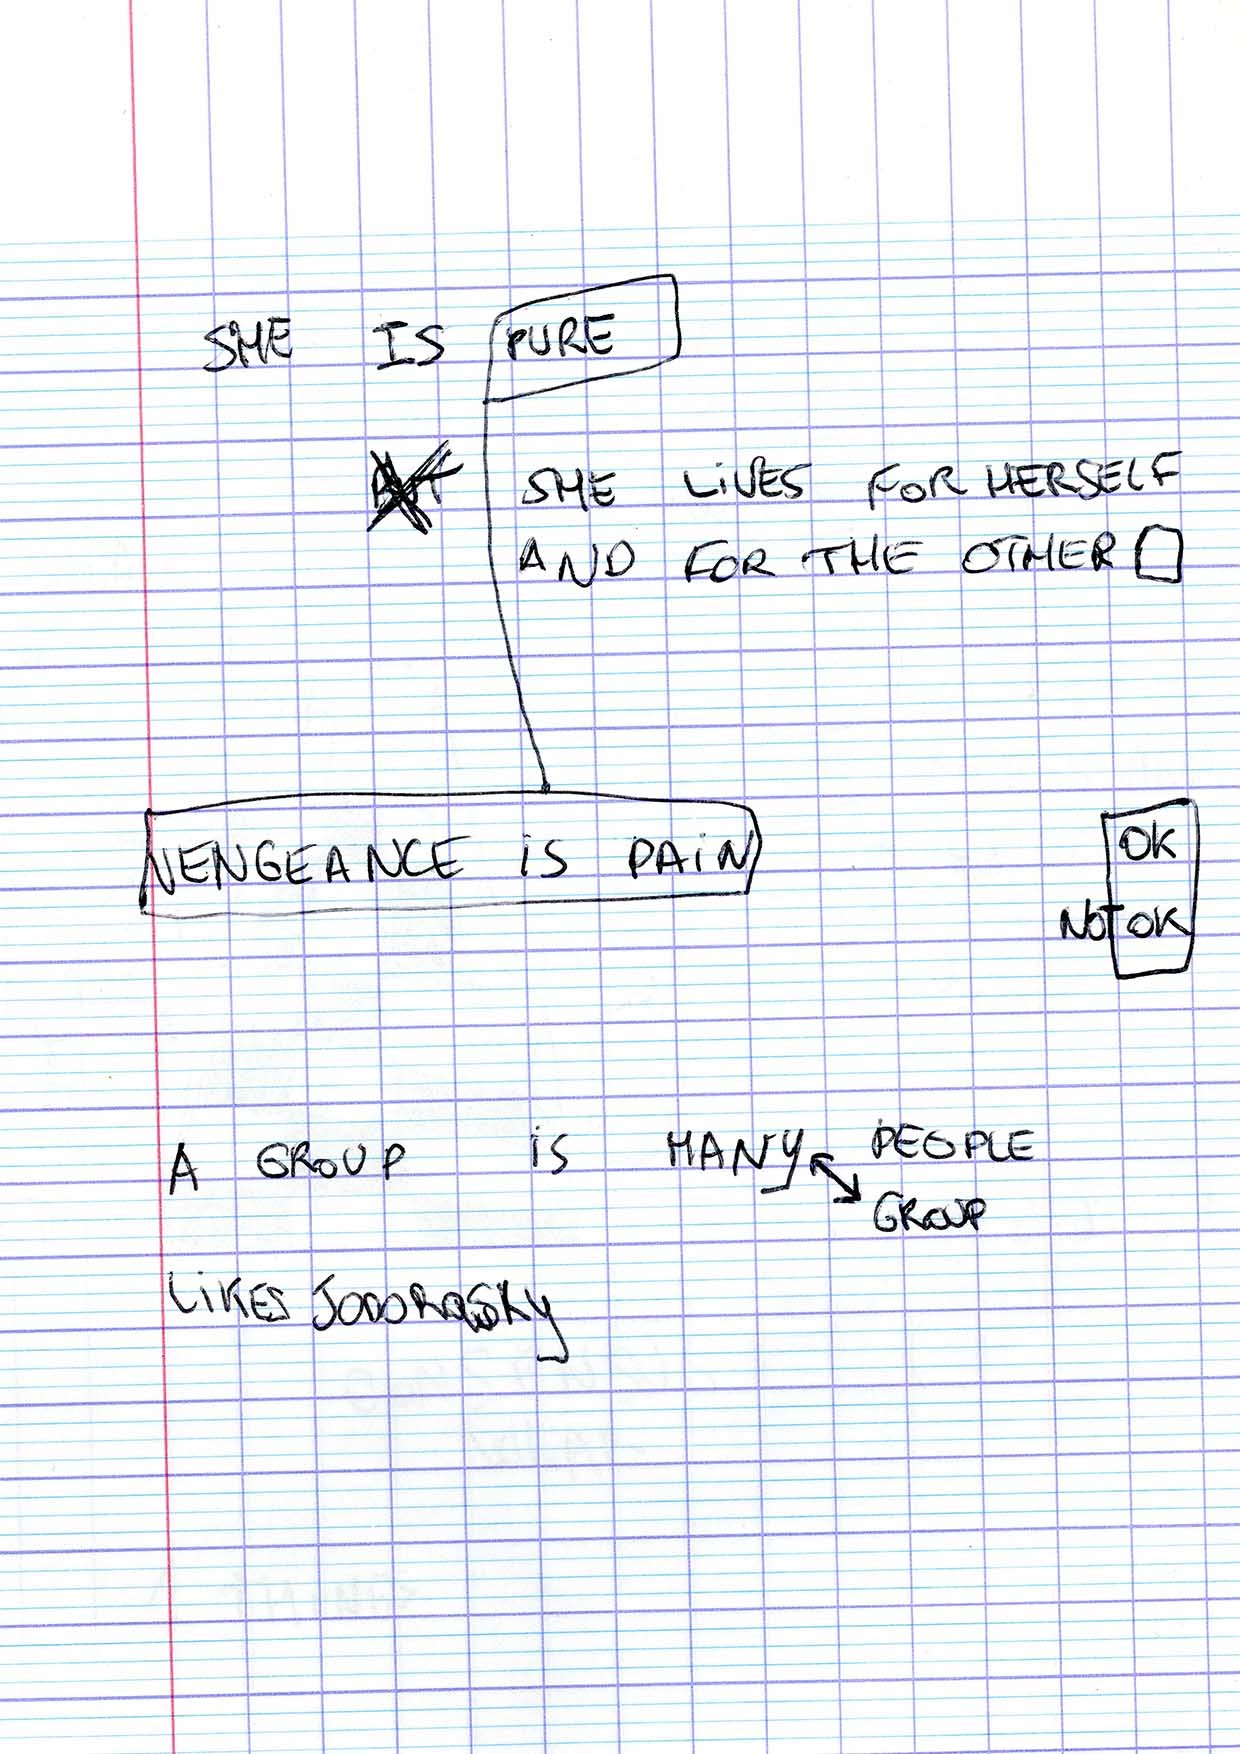 SHE IS PURE
SHE LIVES FOR HERSELF
AND FOR THE OTHER
VENGEANCE IS PAIN
OK
NOT OK
A GROUP IS MANY PEOPLE
GROUP
LIKES